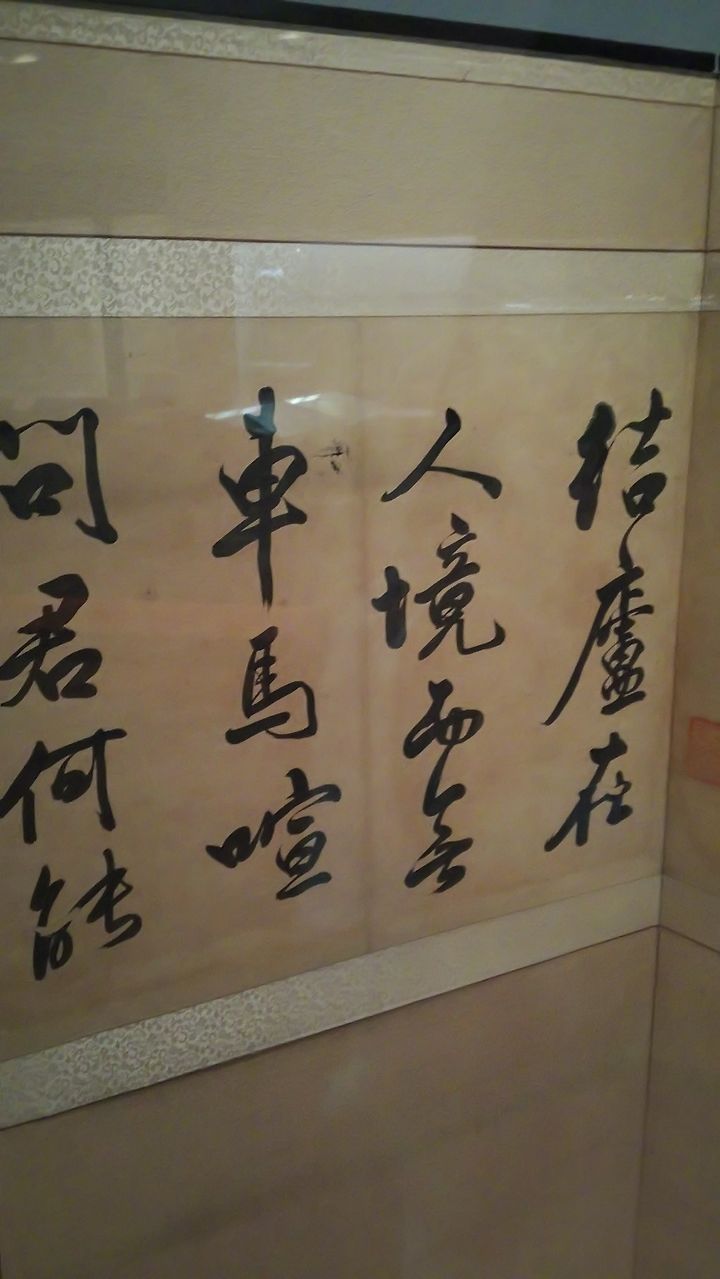 結廬在
人境而無
車馬喧
問君何能